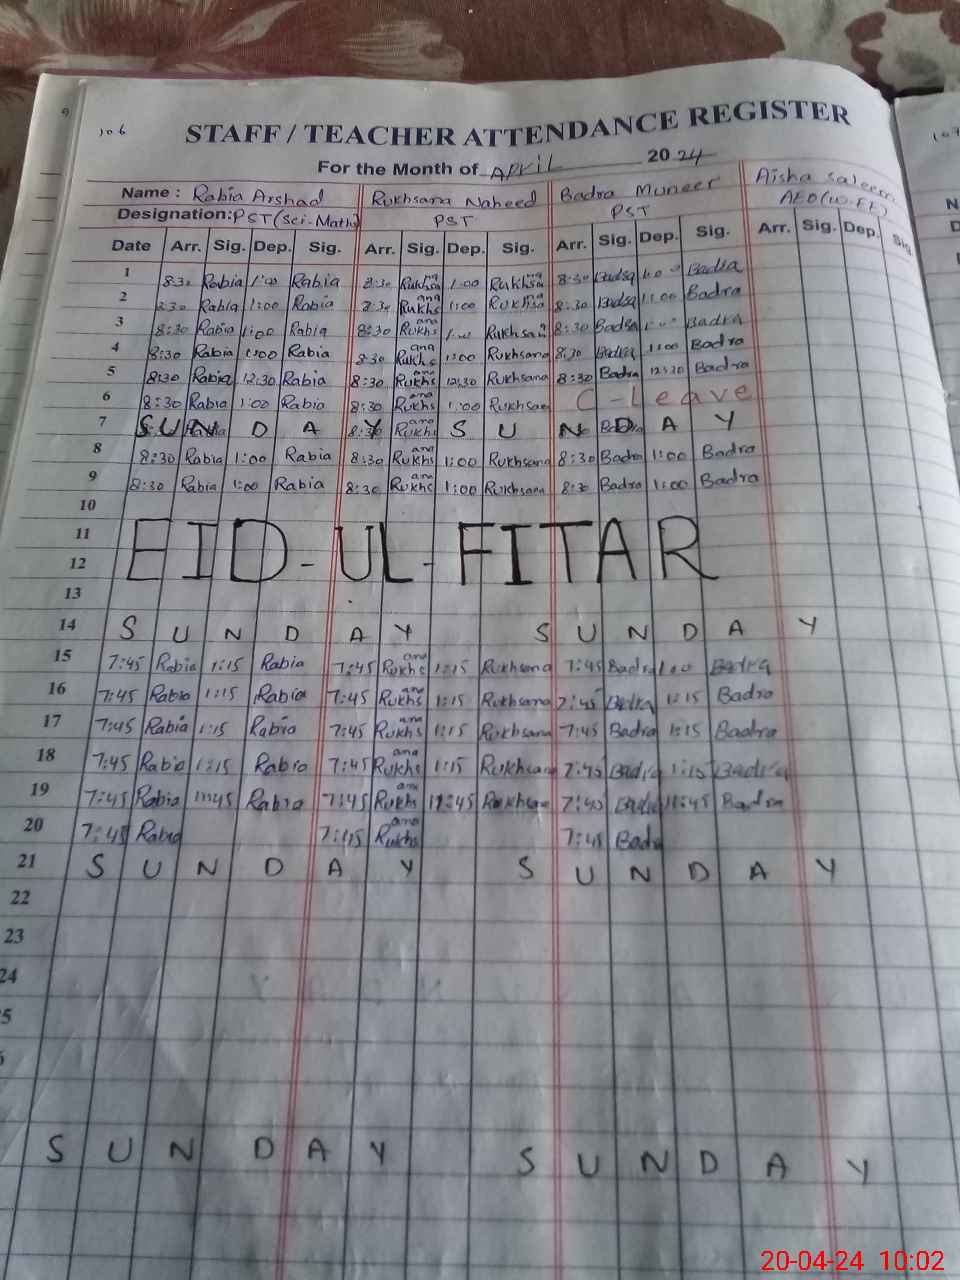 106
STAFF / TEACHER ATTENDANCE REGISTER
For the Month of April 2024
Name : Rabia Arshad Rukhsana Naheed Badra Muneer Aisha Saleem
Designation: PST (Sci-Math) PST PST AEO (W-EE)
Date Arr. Sig. Dep. Sig. Arr. Sig. Dep. Sig. Arr. Sig. Dep. Sig. Arr. Sig. Dep. Sig.
1 8:30 Rabia 1:00 Rabia 8:30 Rukhsana 1:00 Rukhsana 8:30 Badra 1:00 Badra
2 8:30 Rabia 1:00 Rabia 8:30 Rukhsana 1:00 Rukhsana 8:30 Badra 1:00 Badra
3 8:30 Rabia 1:00 Rabia 8:30 Rukhsana 1:00 Rukhsana 8:30 Badra 1:00 Badra
4 8:30 Rabia 1:00 Rabia 8:30 Rukhsana 1:00 Rukhsana 8:30 Badra 1:00 Badra
5 8:30 Rabia 12:30 Rabia 8:30 Rukhsana 12:30 Rukhsana 8:30 Badra 12:30 Badra
6 8:30 Rabia 1:00 Rabia 8:30 Rukhsana 1:00 Rukhsana C - Leave
7 SUNDAY SUNDAY
8 8:30 Rabia 1:00 Rabia 8:30 Rukhsana 1:00 Rukhsana 8:30 Badra 1:00 Badra
9 8:30 Rabia 1:00 Rabia 8:30 Rukhsana 1:00 Rukhsana 8:30 Badra 1:00 Badra
10
11
EID-UL-FITAR
12
13
14 SUNDAY SUNDAY
15 7:45 Rabia 1:15 Rabia 7:45 Rukhsana 1:15 Rukhsana 7:45 Badra 1:00 Badra
16 7:45 Rabia 1:15 Rabia 7:45 Rukhsana 1:15 Rukhsana 7:45 Badra 1:15 Badra
17 7:45 Rabia 1:15 Rabia 7:45 Rukhsana 1:15 Rukhsana 7:45 Badra 1:15 Badra
18 7:45 Rabia 1:15 Rabia 7:45 Rukhsana 1:15 Rukhsana 7:45 Badra 1:15 Badra
19 7:45 Rabia 11:45 Rabia 7:45 Rukhsana 11:45 Rukhsana 7:45 Badra 11:45 Badra
20 7:45 Rabia 7:45 Rukhsana 7:45 Badra
21 SUNDAY SUNDAY
22
23
24
5
SUNDAY SUNDAY
20-04-24 10:02